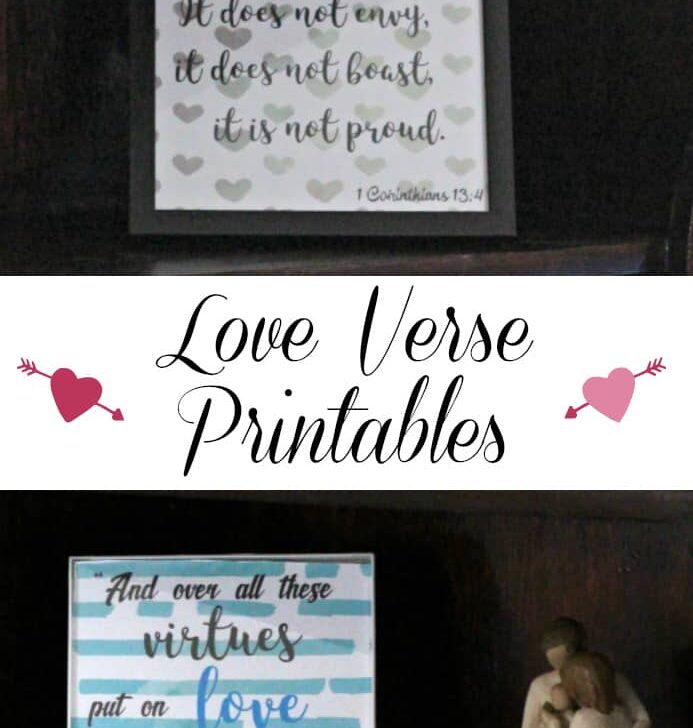 It does not envy,
it does not boast,
it is not proud.
1 Corinthians 13:4
Love Verse
Printables
"And over all these
virtues
put on love